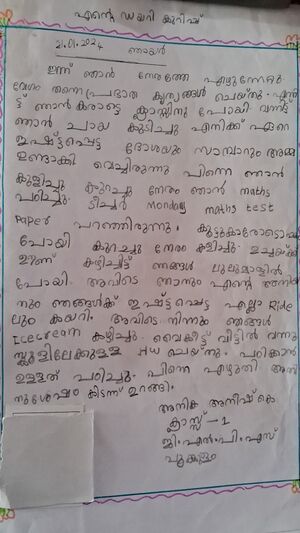 എന്റെ ഡയറി കുറിപ്പ്
21.01.2024 ഞായർ
ഇന്ന് ഞാൻ നേരത്തേ എഴുന്നേറ്റു
വേഗം തന്നെ പ്രഭാത കൃത്യങ്ങൾ ചെയ്തു. എന്നി
ട്ട് ഞാൻ കരാട്ടെ ക്ലാസ്സിനു പോയി. വന്നിട്ട്
ഞാൻ ചായ കുടിച്ചു എനിക്ക് ഏറെ
ഇഷ്ടപ്പെട്ട ദോശയും സാമ്പാറും അമ്മ
ഉണ്ടാക്കി വെച്ചിരുന്നു പിന്നെ ഞാൻ
കുളിച്ചു കുറച്ചു നേരം ഞാൻ maths
പഠിച്ചു. ടീച്ചർ Monday maths test
Paper പറഞ്ഞിരുന്നു. കൂട്ടുകാരോടൊപ്പം
പോയി കുറച്ചു നേരം കളിച്ചു. ഉച്ചയ്ക്ക്
ഊണ് കഴിച്ചിട്ട് ഞങ്ങൾ ലുലുമാളിൽ
പോയി. അവിടെ ഞാനും എന്റെ അനിയ
നും ഞങ്ങൾക്ക് ഇഷ്ടപ്പെട്ട എല്ലാ Ride
ലും കയറി. അവിടെ നിന്നും ഞങ്ങൾ
Icecream കഴിച്ചു. വൈകീട്ട് വീട്ടിൽ വന്നു
സ്കൂളിലേക്കുള്ള HW ചെയ്തു. പഠിക്കാൻ
ഉള്ളത് പഠിച്ചു. പിന്നെ എഴുതി അതി
നുശേഷം കിടന്ന് ഉറങ്ങി.
അനിക അനീഷ് കെ
ക്ലാസ്സ് - 1
ജി.എൽ.പി.എസ്